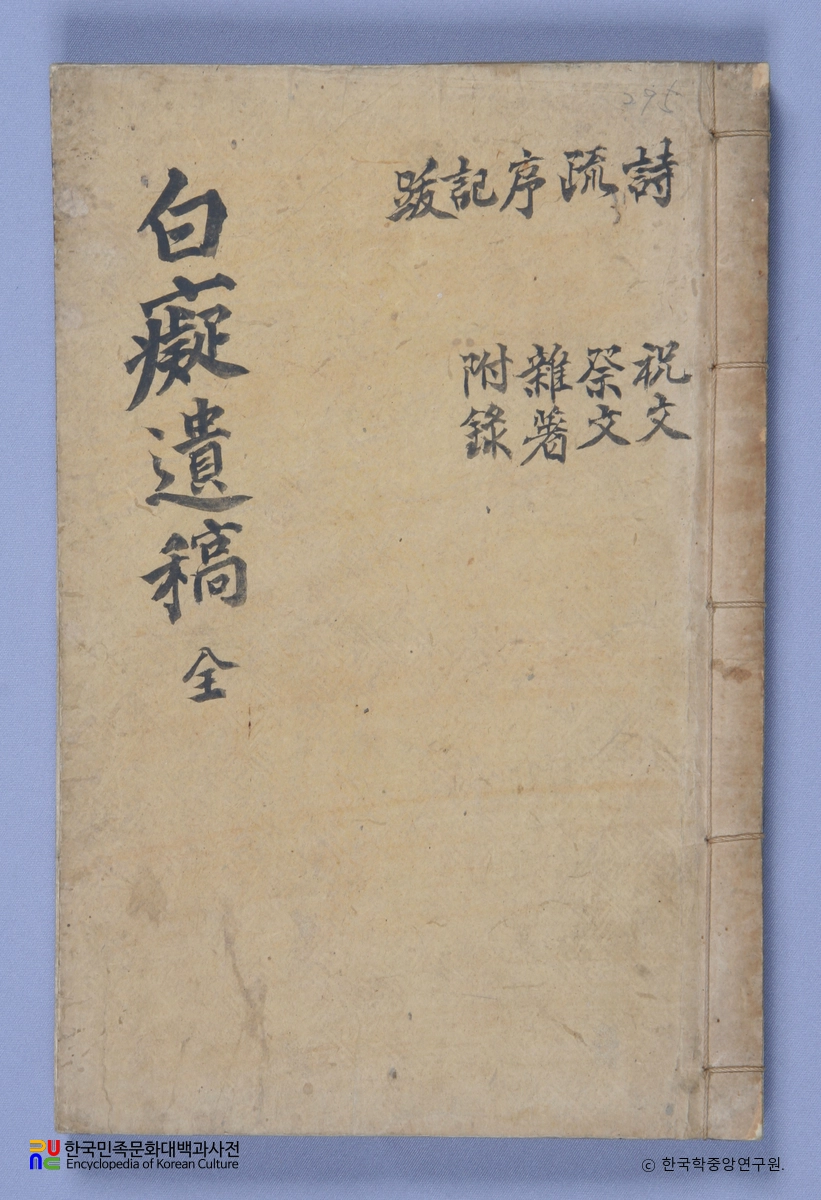 295
詩
疏
序
記
跋
祝文
祭文
雜著
附錄
白癡遺稿 全
한국민족문화대백과사전
Encyclopedia of Korean Culture
© 한국학중앙연구원.